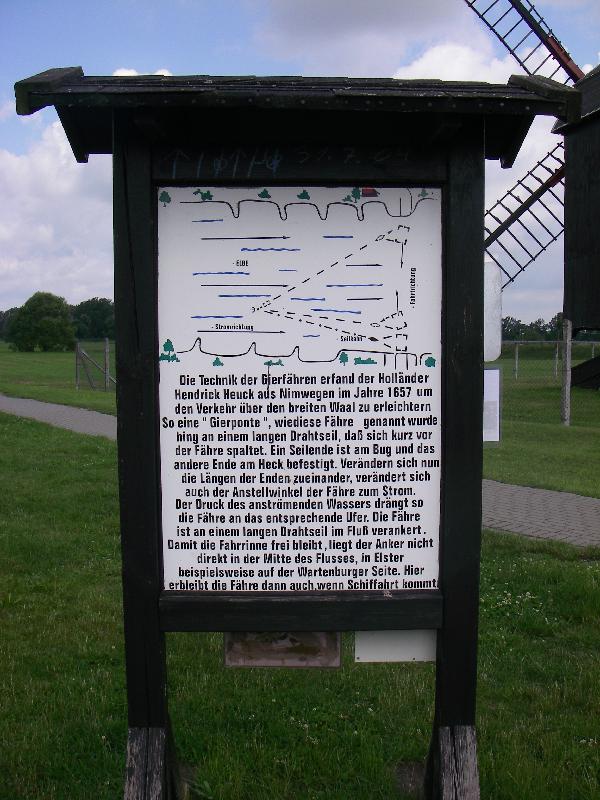 31.7.04
- ELBE
- Fahrtrichtung
- Stromrichtung
- Seilbahn
Die Technik der Gierfähren erfand der Holländer
Hendrick Heuck aus Nimwegen im Jahre 1657 um
den Verkehr über den breiten Waal zu erleichtern
So eine " Gierponte ", wiediese Fähre genannt wurde
hing an einem langen Drahtseil, daß sich kurz vor
der Fähre spaltet. Ein Seilende ist am Bug und das
andere Ende am Heck befestigt. Verändern sich nun
die Längen der Enden zueinander, verändert sich
auch der Anstellwinkel der Fähre zum Strom.
Der Druck des anströmenden Wassers drängt so
die Fähre an das entsprechende Ufer. Die Fähre
ist an einem langen Drahtseil im Fluß verankert.
Damit die Fahrrinne frei bleibt, liegt der Anker nicht
direkt in der Mitte des Flusses, in Elster
beispielsweise auf der Wartenburger Seite. Hier
erbleibt die Fähre dann auch, wenn Schiffahrt kommt